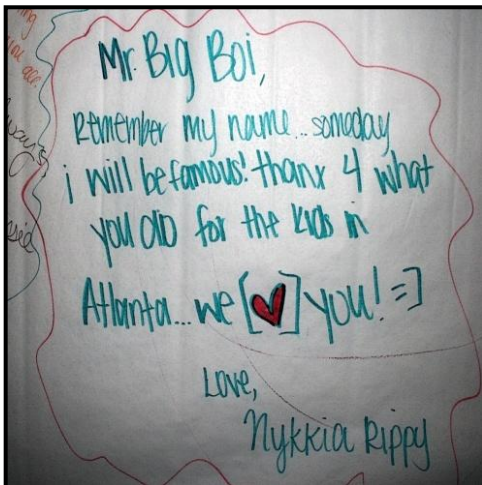 Mr. Big Boi,
Remember my name... someday
i will be famous! thanx 4 what
you did for the kids in
Atlanta... we [❤] you! =]
Love,
Nykkia Rippy